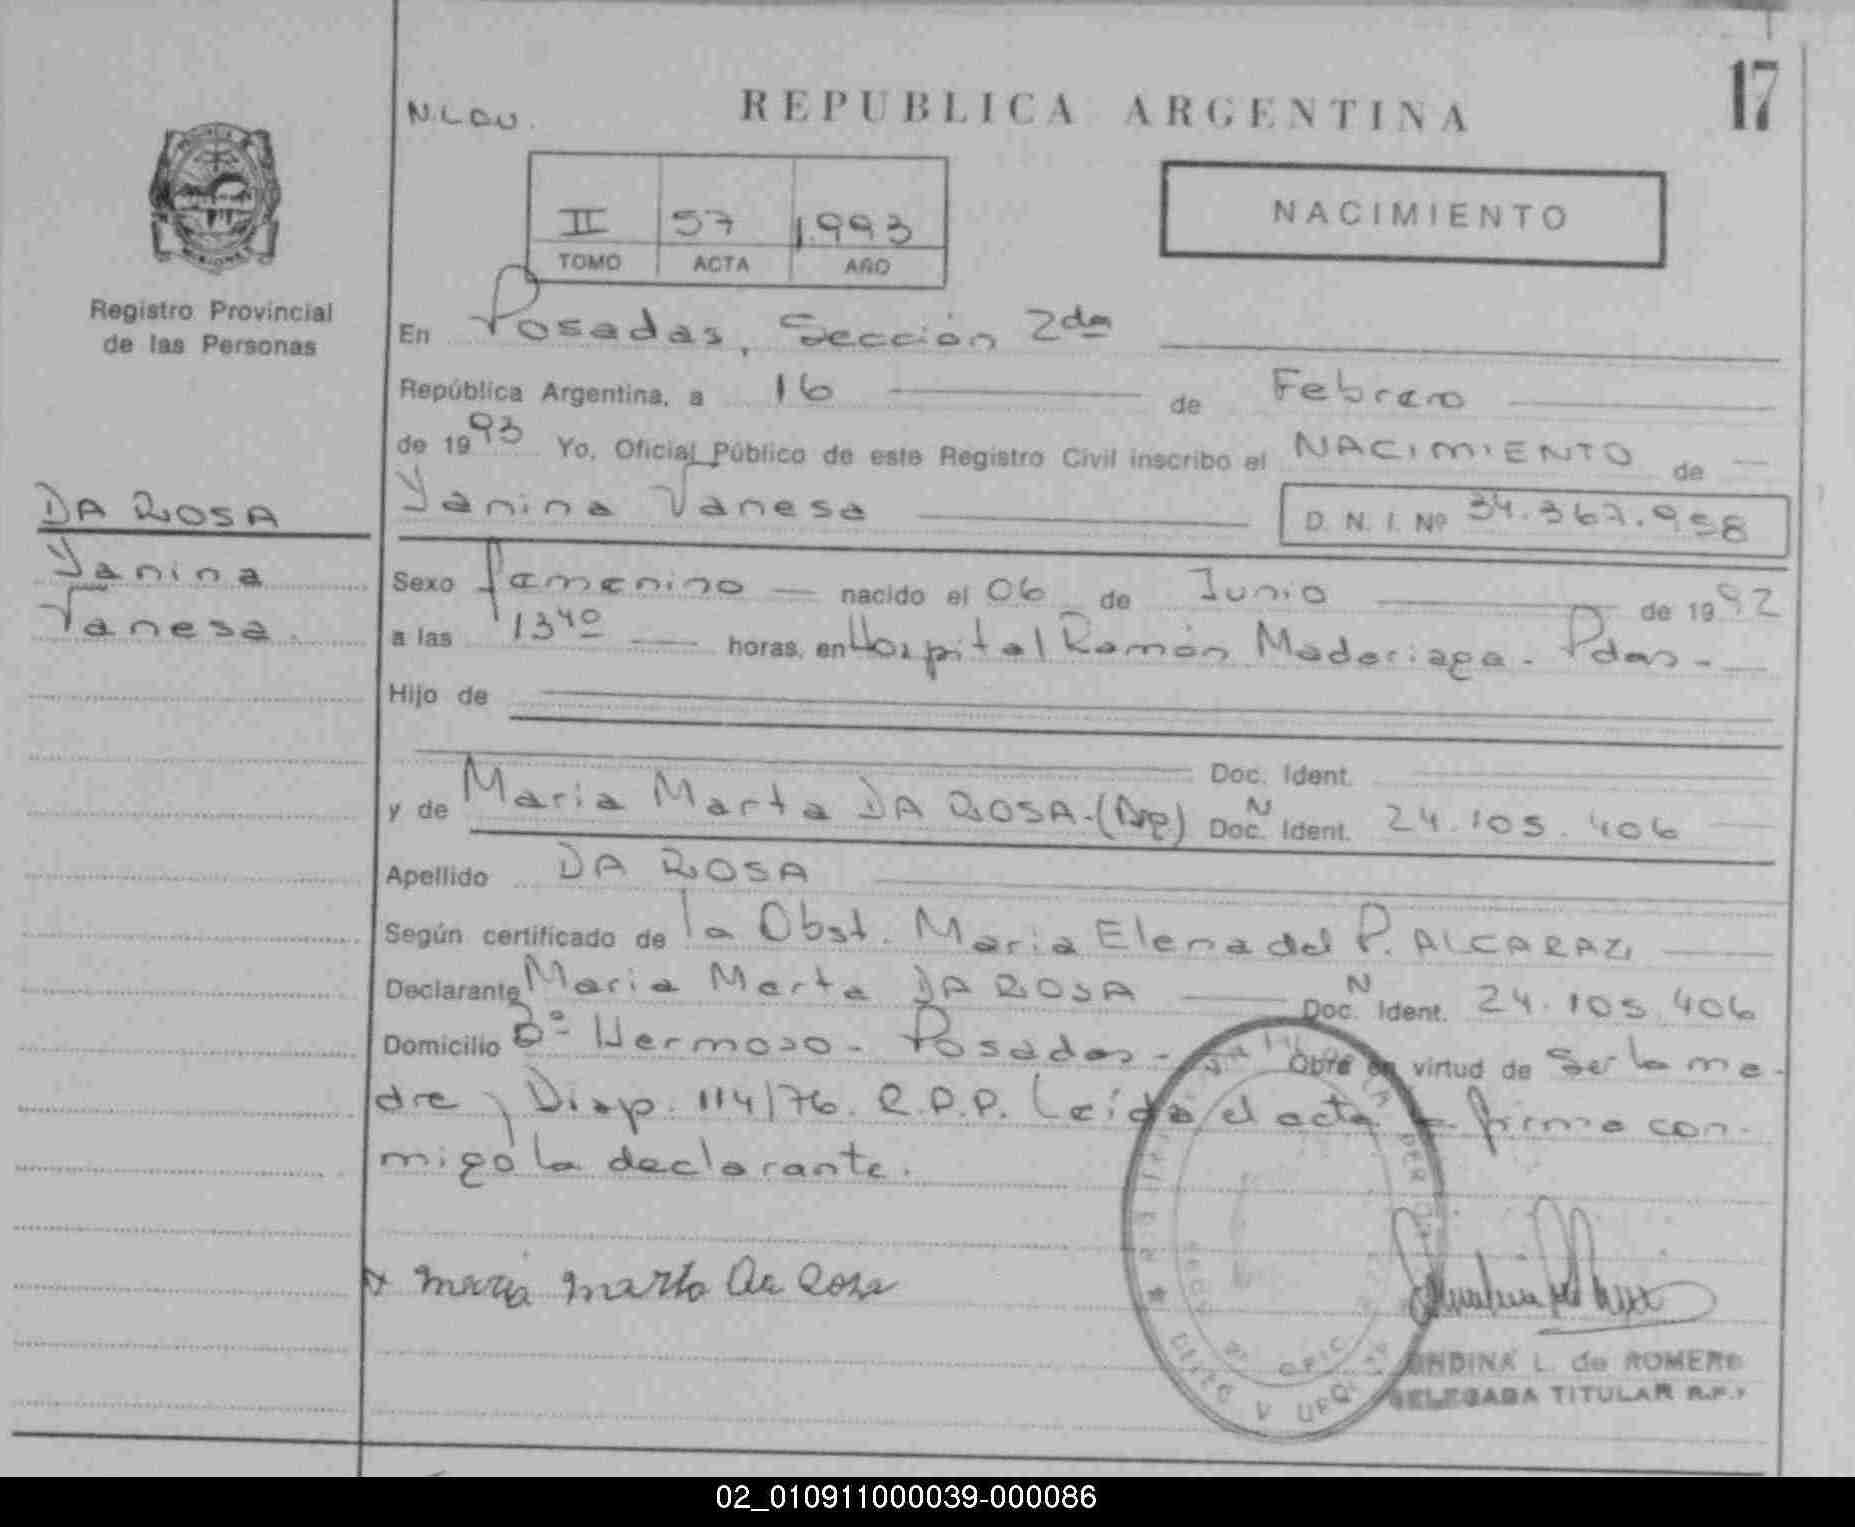 17
N.LDU.
REPUBLICA ARGENTINA
NACIMIENTO
II 57 1.993
TOMO ACTA AÑO
Registro Provincial
de las Personas
En Posadas, Sección 2da
República Argentina, a 16 de Febrero
de 1993 Yo, Oficial Público de este Registro Civil inscribo el NACIMIENTO de
Yanina Vanesa D. N. I. Nº 34.367.958
DA ROSA
Yanina
Vanesa.
Sexo femenino nacido el 06 de Junio de 1992
a las 13 40 horas, en Hospital Ramón Madariaga - Pdas -
Hijo de
Doc. Ident.
y de Maria Marta DA ROSA - (Arg) N Doc. Ident. 24.105.406
Apellido DA ROSA
Según certificado de la Obst. Maria Elena del P. ALCARAZ
Declarante Maria Marta DA ROSA N Doc. Ident. 24.105.406
Domicilio Bº Hermoso - Posadas - Obra en virtud de ser la ma-
dre y Disp. 114/76. R.P.P. Leída el acta la firma con-
migo la declarante.
x maria marta da Rosa
ONDINA L. de ROMERO
DELEGADA TITULAR R.P.P
02_010911000039-000086